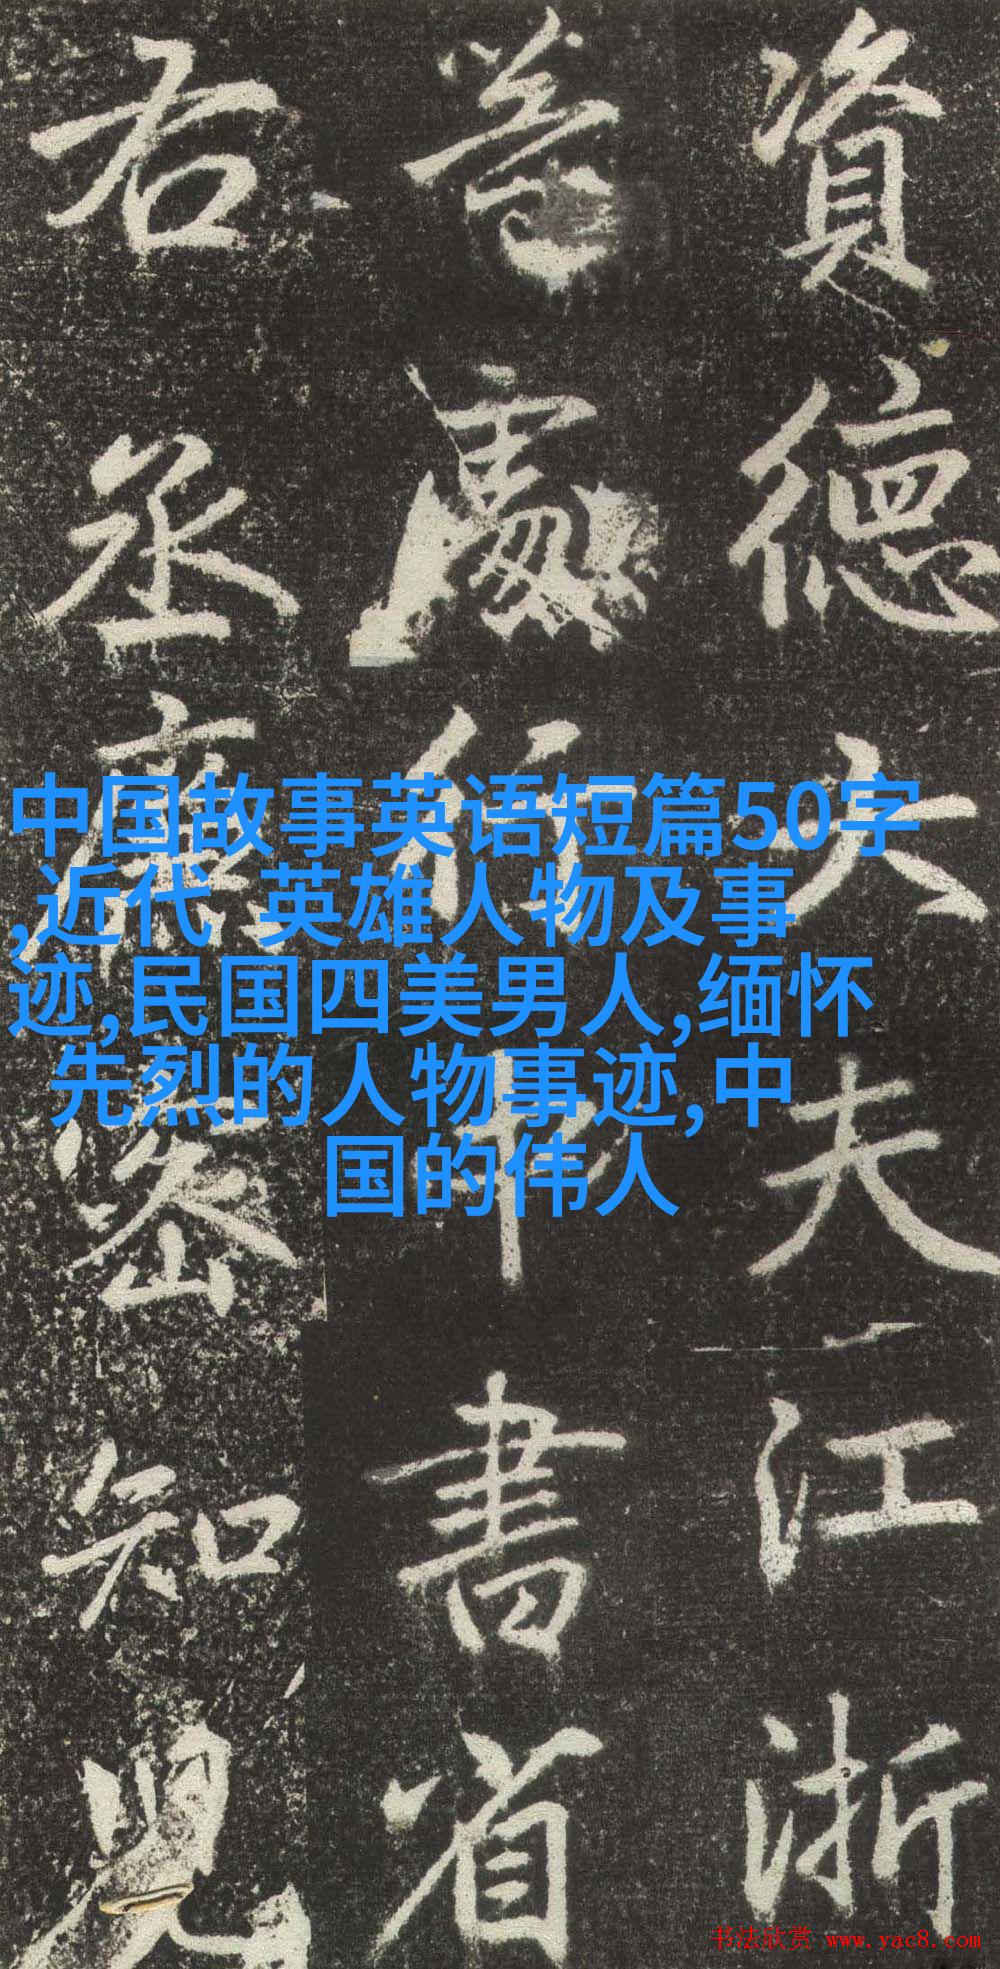 資德大夫江浙
等處行中書省
右丞廉密知兒
中国故事英语短篇50字
,近代 英雄人物及事
迹,民国四美男人,缅怀
先烈的人物事迹,中
国的伟人
书法欣赏 www.yac8.com